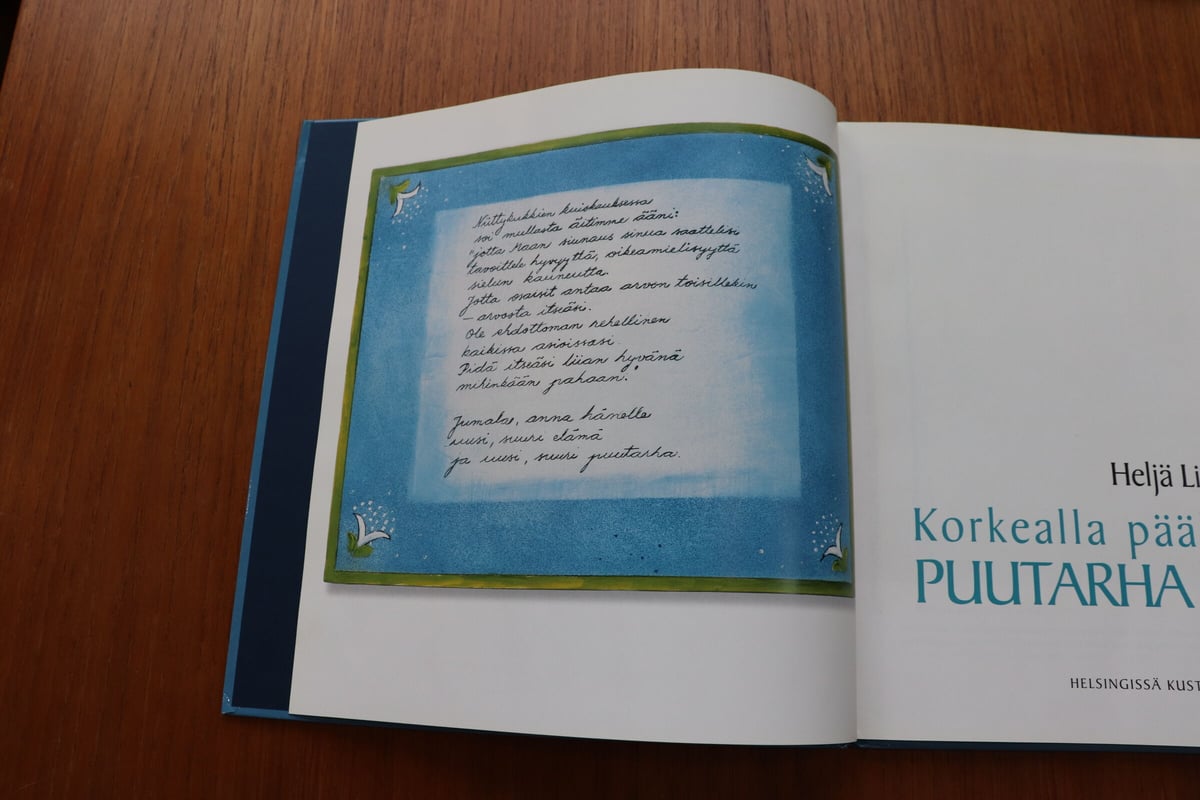 Niittykukkien kuiskauksessa
soi mullasta äitimme ääni:
"jotta Maan siunaus sinua saattelisi
tavoittele hyvyyttä, oikeamielisyyttä
sielun kauneutta.
Jotta osaisit antaa arvon toisillekin
– arvosta itseäsi.
Ole ehdottoman rehellinen
kaikissa asioissasi.
Pidä itseäsi liian hyvänä
mihinkään pahaan."
Jumala, anna hänelle
uusi, suuri elämä
ja uusi, suuri puutarha.
Heljä Li
Korkealla pää
PUUTARHA
HELSINGISSÄ KUST